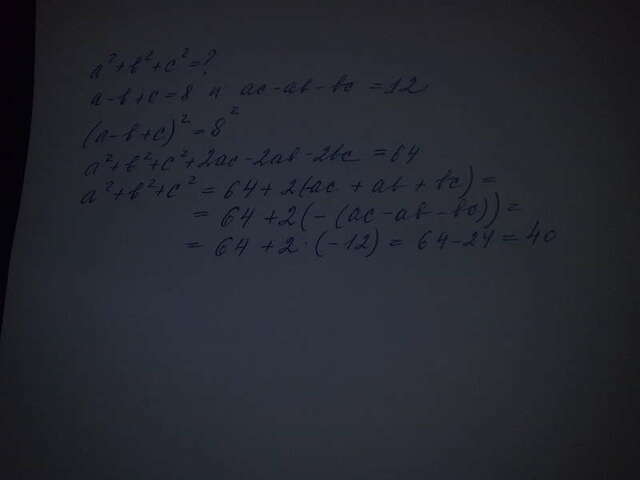 a²+b²+c²=?
a-b+c=8 и ac-ab-bc=12
(a-b+c)²=8²
a²+b²+c²+2ac-2ab-2bc=64
a²+b²+c²=64+2(ac+ab+bc)=
=64+2(-(ac-ab-bc))=
=64+2·(-12)=64-24=40